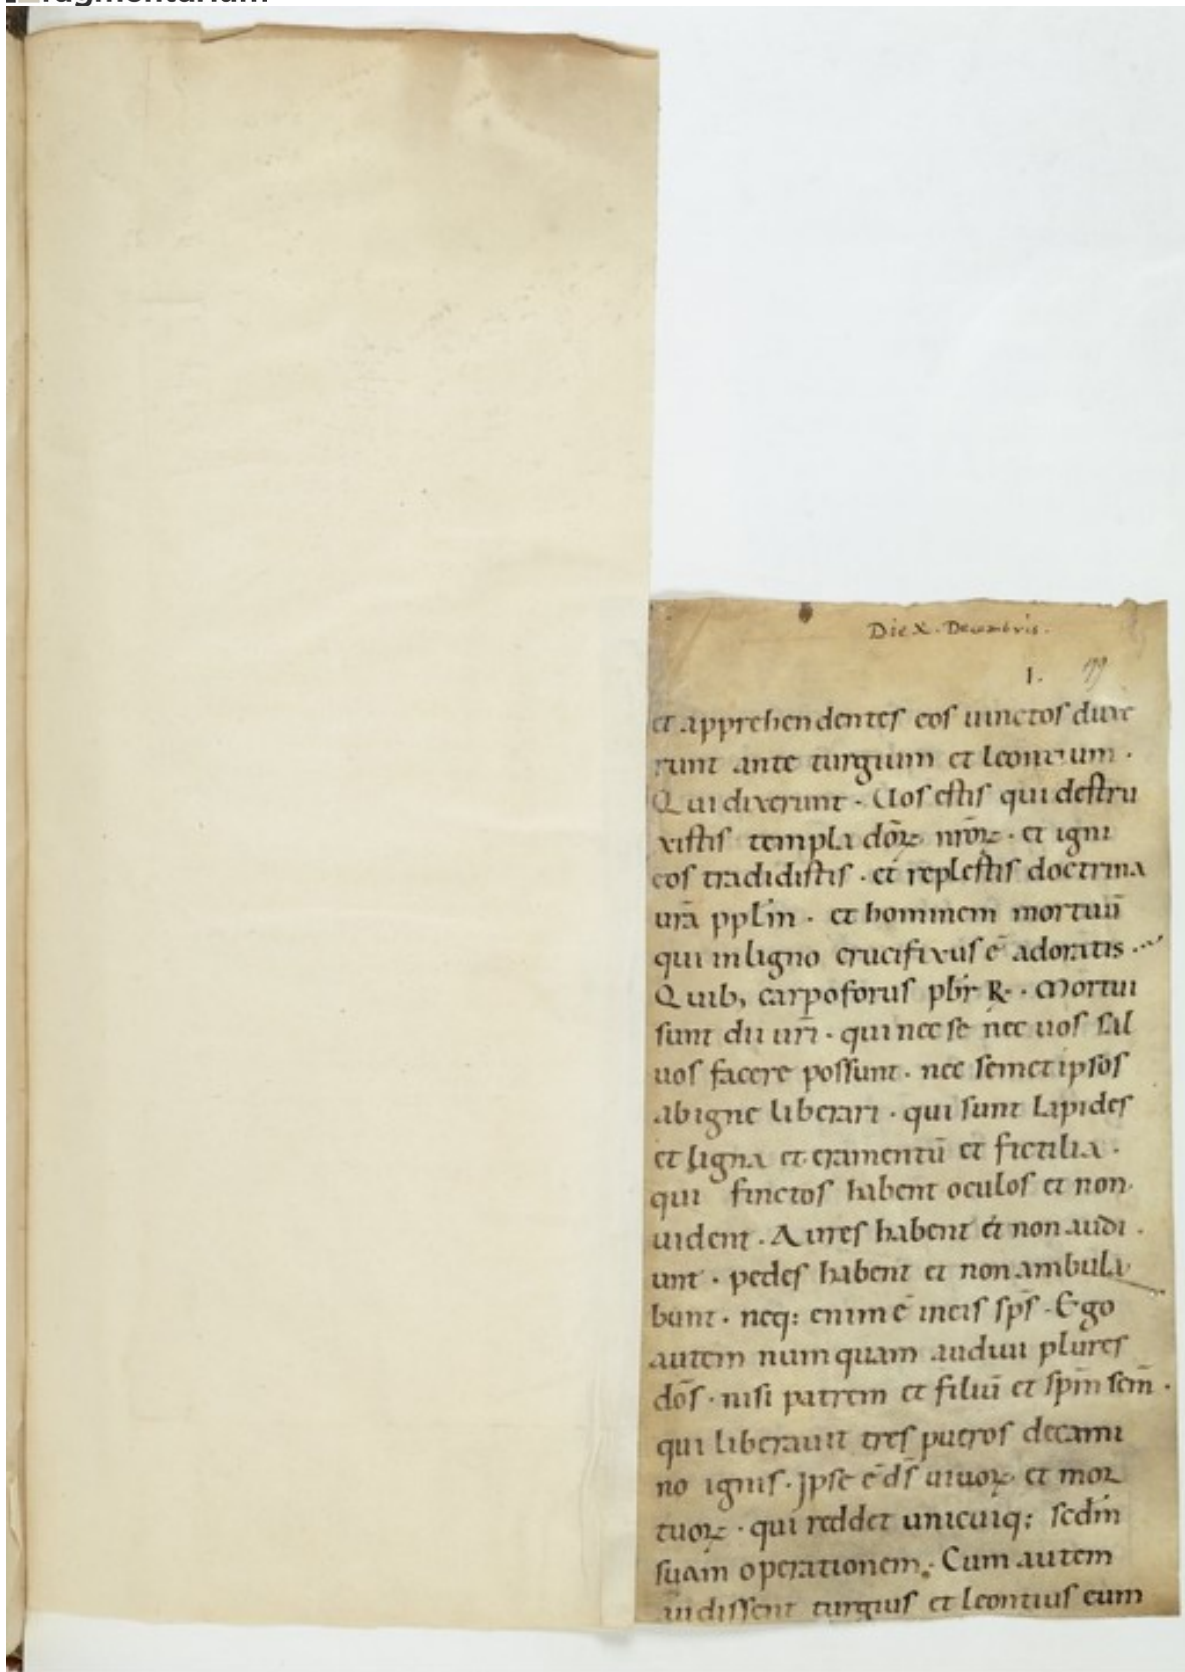 Die X. Decembris.
I. 99
et apprehendentes eos uinctos duxe
runt ante turgium et leontium ·
Qui dixerunt · Uos estis qui destru
xistis templa doꝝ nr̄oꝝ · et igni
eos tradidistis · et replestis doctrina
ur̄a pplm̄ · et hominem mortuū
qui inligno crucifixus ē adoratis ·
Quib; carpoforus pbr̄ R · Mortui
sunt dii ur̄i · qui nec se nec uos sal
uos facere possunt · nec semetipsos
ab igne liberari · qui sunt lapides
et ligna et eramentū et fictilia ·
qui finctos habent oculos et non
uident · Aures habent et non audi
unt · pedes habent et non ambula
bunt · neq: enim ē ineis sp̄s · Ego
autem numquam audiui plures
dōs · nisi patrem et filiū et sp̄m scm̄ ·
qui liberauit tres pueros decami
no ignis · Ipse ē ds̄ uiuoꝝ et mor
tuoꝝ · qui reddet unicuiq: sedm̄
suam operationem · Cum autem
audissent turgius et leontius eum